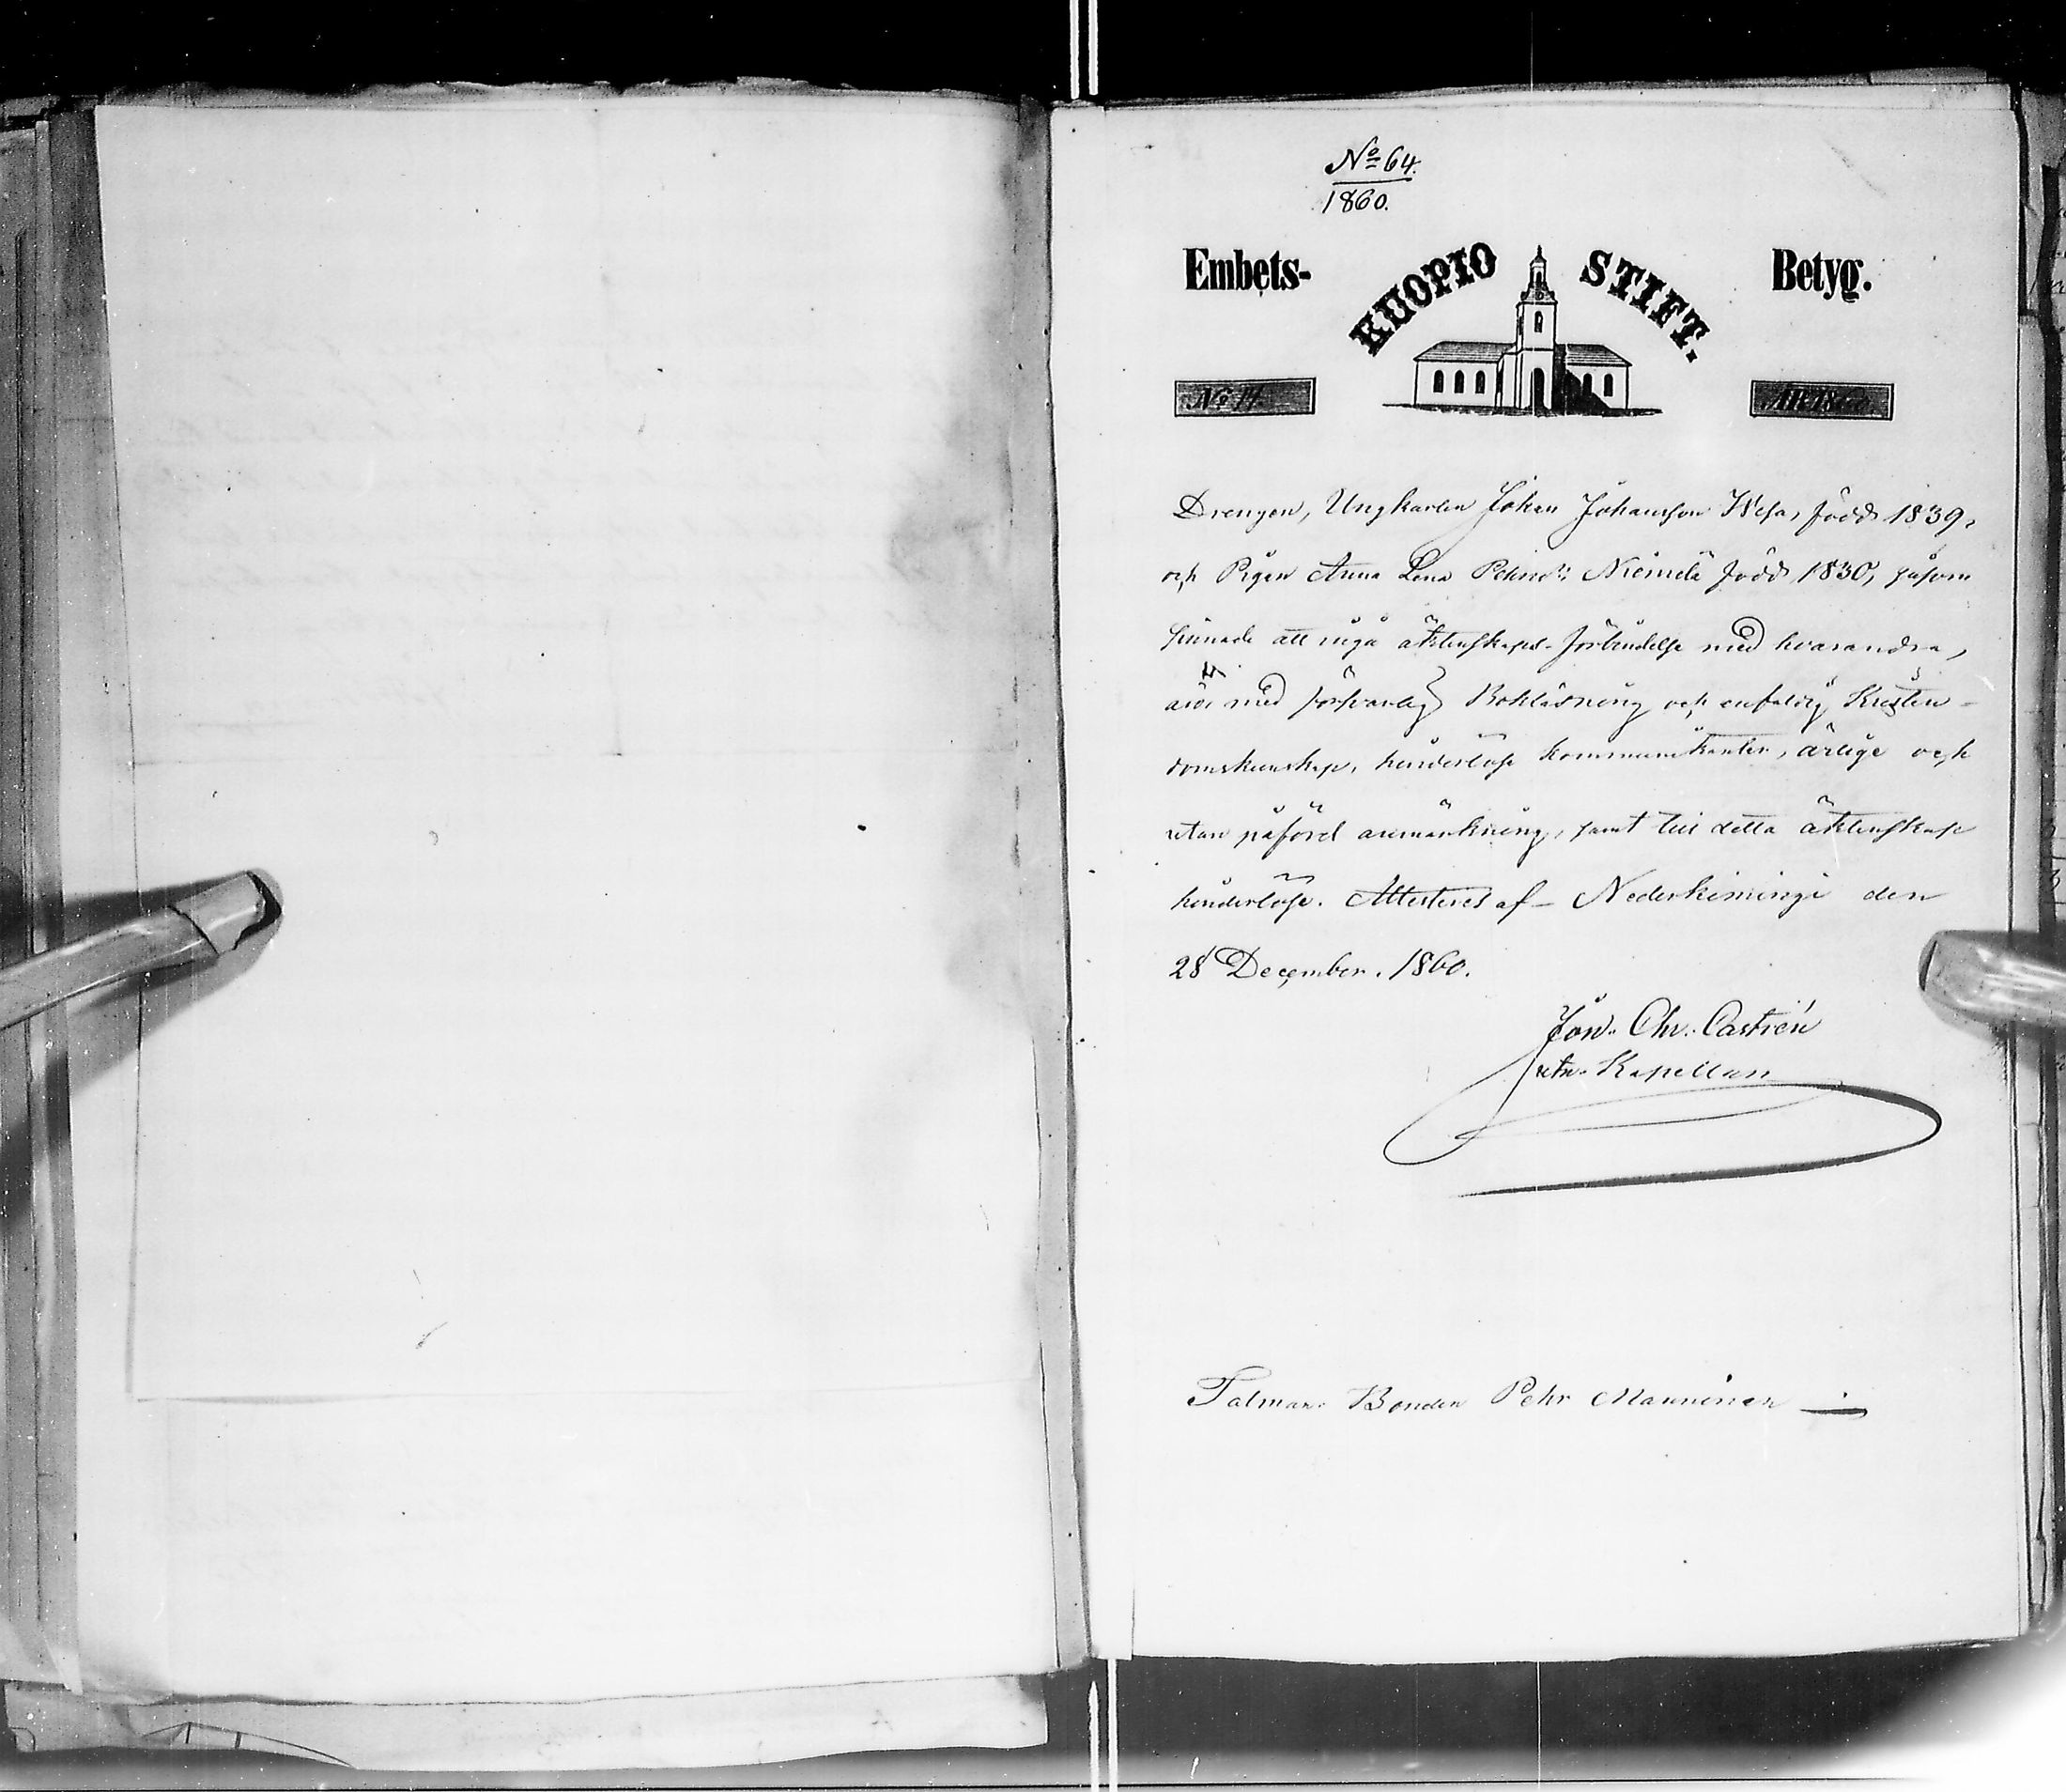 No 64.
1860.
Embets- KUOPIO STIFT. Betyg.
No 14. ÅR 1860.
Drengen, Ungkarlen Johan Johansson Wesa, född 1839,
och Pigan Anna Lena Pehrsdr Niemelä född 1830, såsom
sinnade att ingå äktenskaps-förbindelse med hvarandra,
äro med försvarlig Bokläsning och enfaldig Kristen-
domskunskap, hinderlöse kommunikanter, ärlige och
utan påförd anmärkning, samt till detta äktenskap
hinderlöse. Attesteras af Nederkiminge den
28 December. 1860.
Jon. Chr. Castrén
Kapellan
Talman. Bonden Pehr Manninen